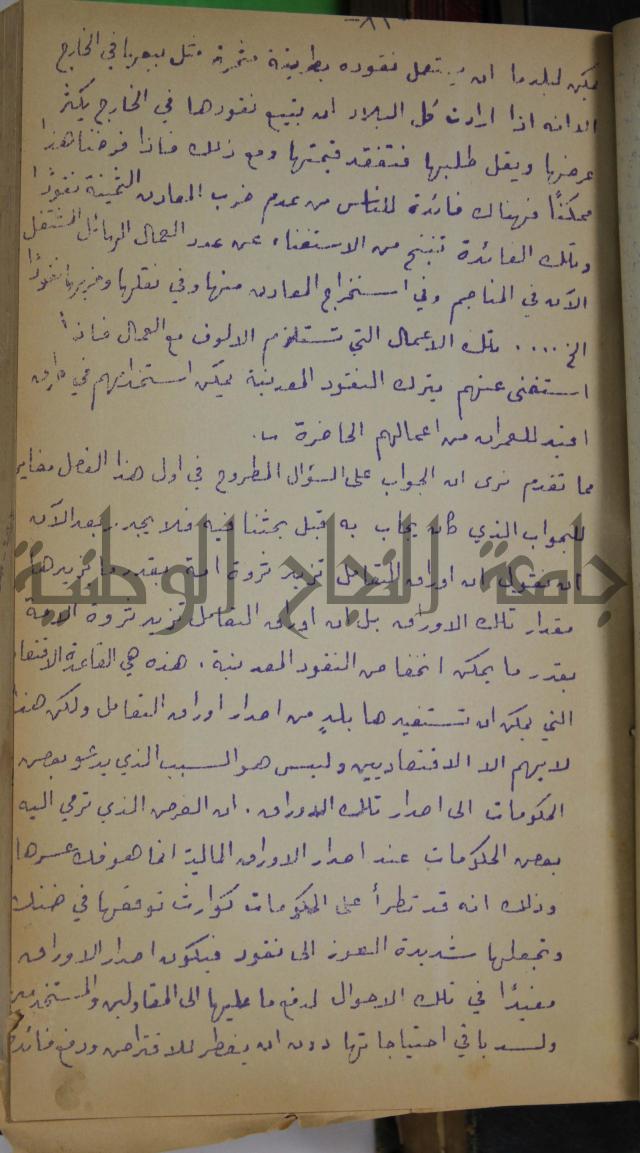 -٨١-
يمكن لبلد ما ان يستعمل نقوده بطريقة مثمرة مثل بيعها في الخارج
الا انه اذا ارادت كل البلاد ان تبيع نقودها في الخارج يكثر
عرضها ويقل طلبها فتفقد قيمتها ومع ذلك فاذا فرضنا هذا
ممكنًا فهناك فائدة للناس من عدم ضرب المعادن الثمينة نقودًا
وتلك الفائدة تنتج من الاستغناء عن عدد العمال الهائل المشتغل
الآن في المناجم وفي استخراج المعادن منها وفي نقلها وضربها نقودًا
الخ .... تلك الاعمال التي تستلزم الالوف مع العمال فاذا
استغنى عنهم بترك النقود المعدنية يمكن استخدامهم في طرق
افيد للعمران من اعمالهم الحاضرة
مما تقدم نرى ان الجواب على السؤال المطروح في اول هذا الفصل مغاير
للجواب الذي كان يجاب به قبل بحثنا فيه فلا يجدر بعد الآن
ان نقول ان اوراق التعامل تزيد ثروة امة بقدر ما يزيدها
مقدار تلك الاوراق بل ان اوراق التعامل تزيد ثروة الامة
بقدر ما يمكن انقاص النقود المعدنية . هذه هي القاعدة
التي يمكن ان تستفيدها بلدٍ من اصدار اوراق التعامل ولكن هذا
لا يهم الا الاقتصاديين وليس هو السبب الذي يدعو بعض
الحكومات الى اصدار تلك الاوراق . ان الغرض الذي ترمي اليه
بعض الحكومات عند اصدار الاوراق المالية انما هو فك عسرها
وذلك انه قد تطرأ على الحكومات كوارث توقعها في ضنك
وتجعلها شديدة العوز الى نقود فيكون اصدار الاوراق
مفيدًا في تلك الاحوال لدفع ما عليها الى المقاولين والمستخدمين
ولسد باقي احتياجاتها دون ان يضطر للاقتراض ودفع فائدة
جامعة النجاح الوطنية